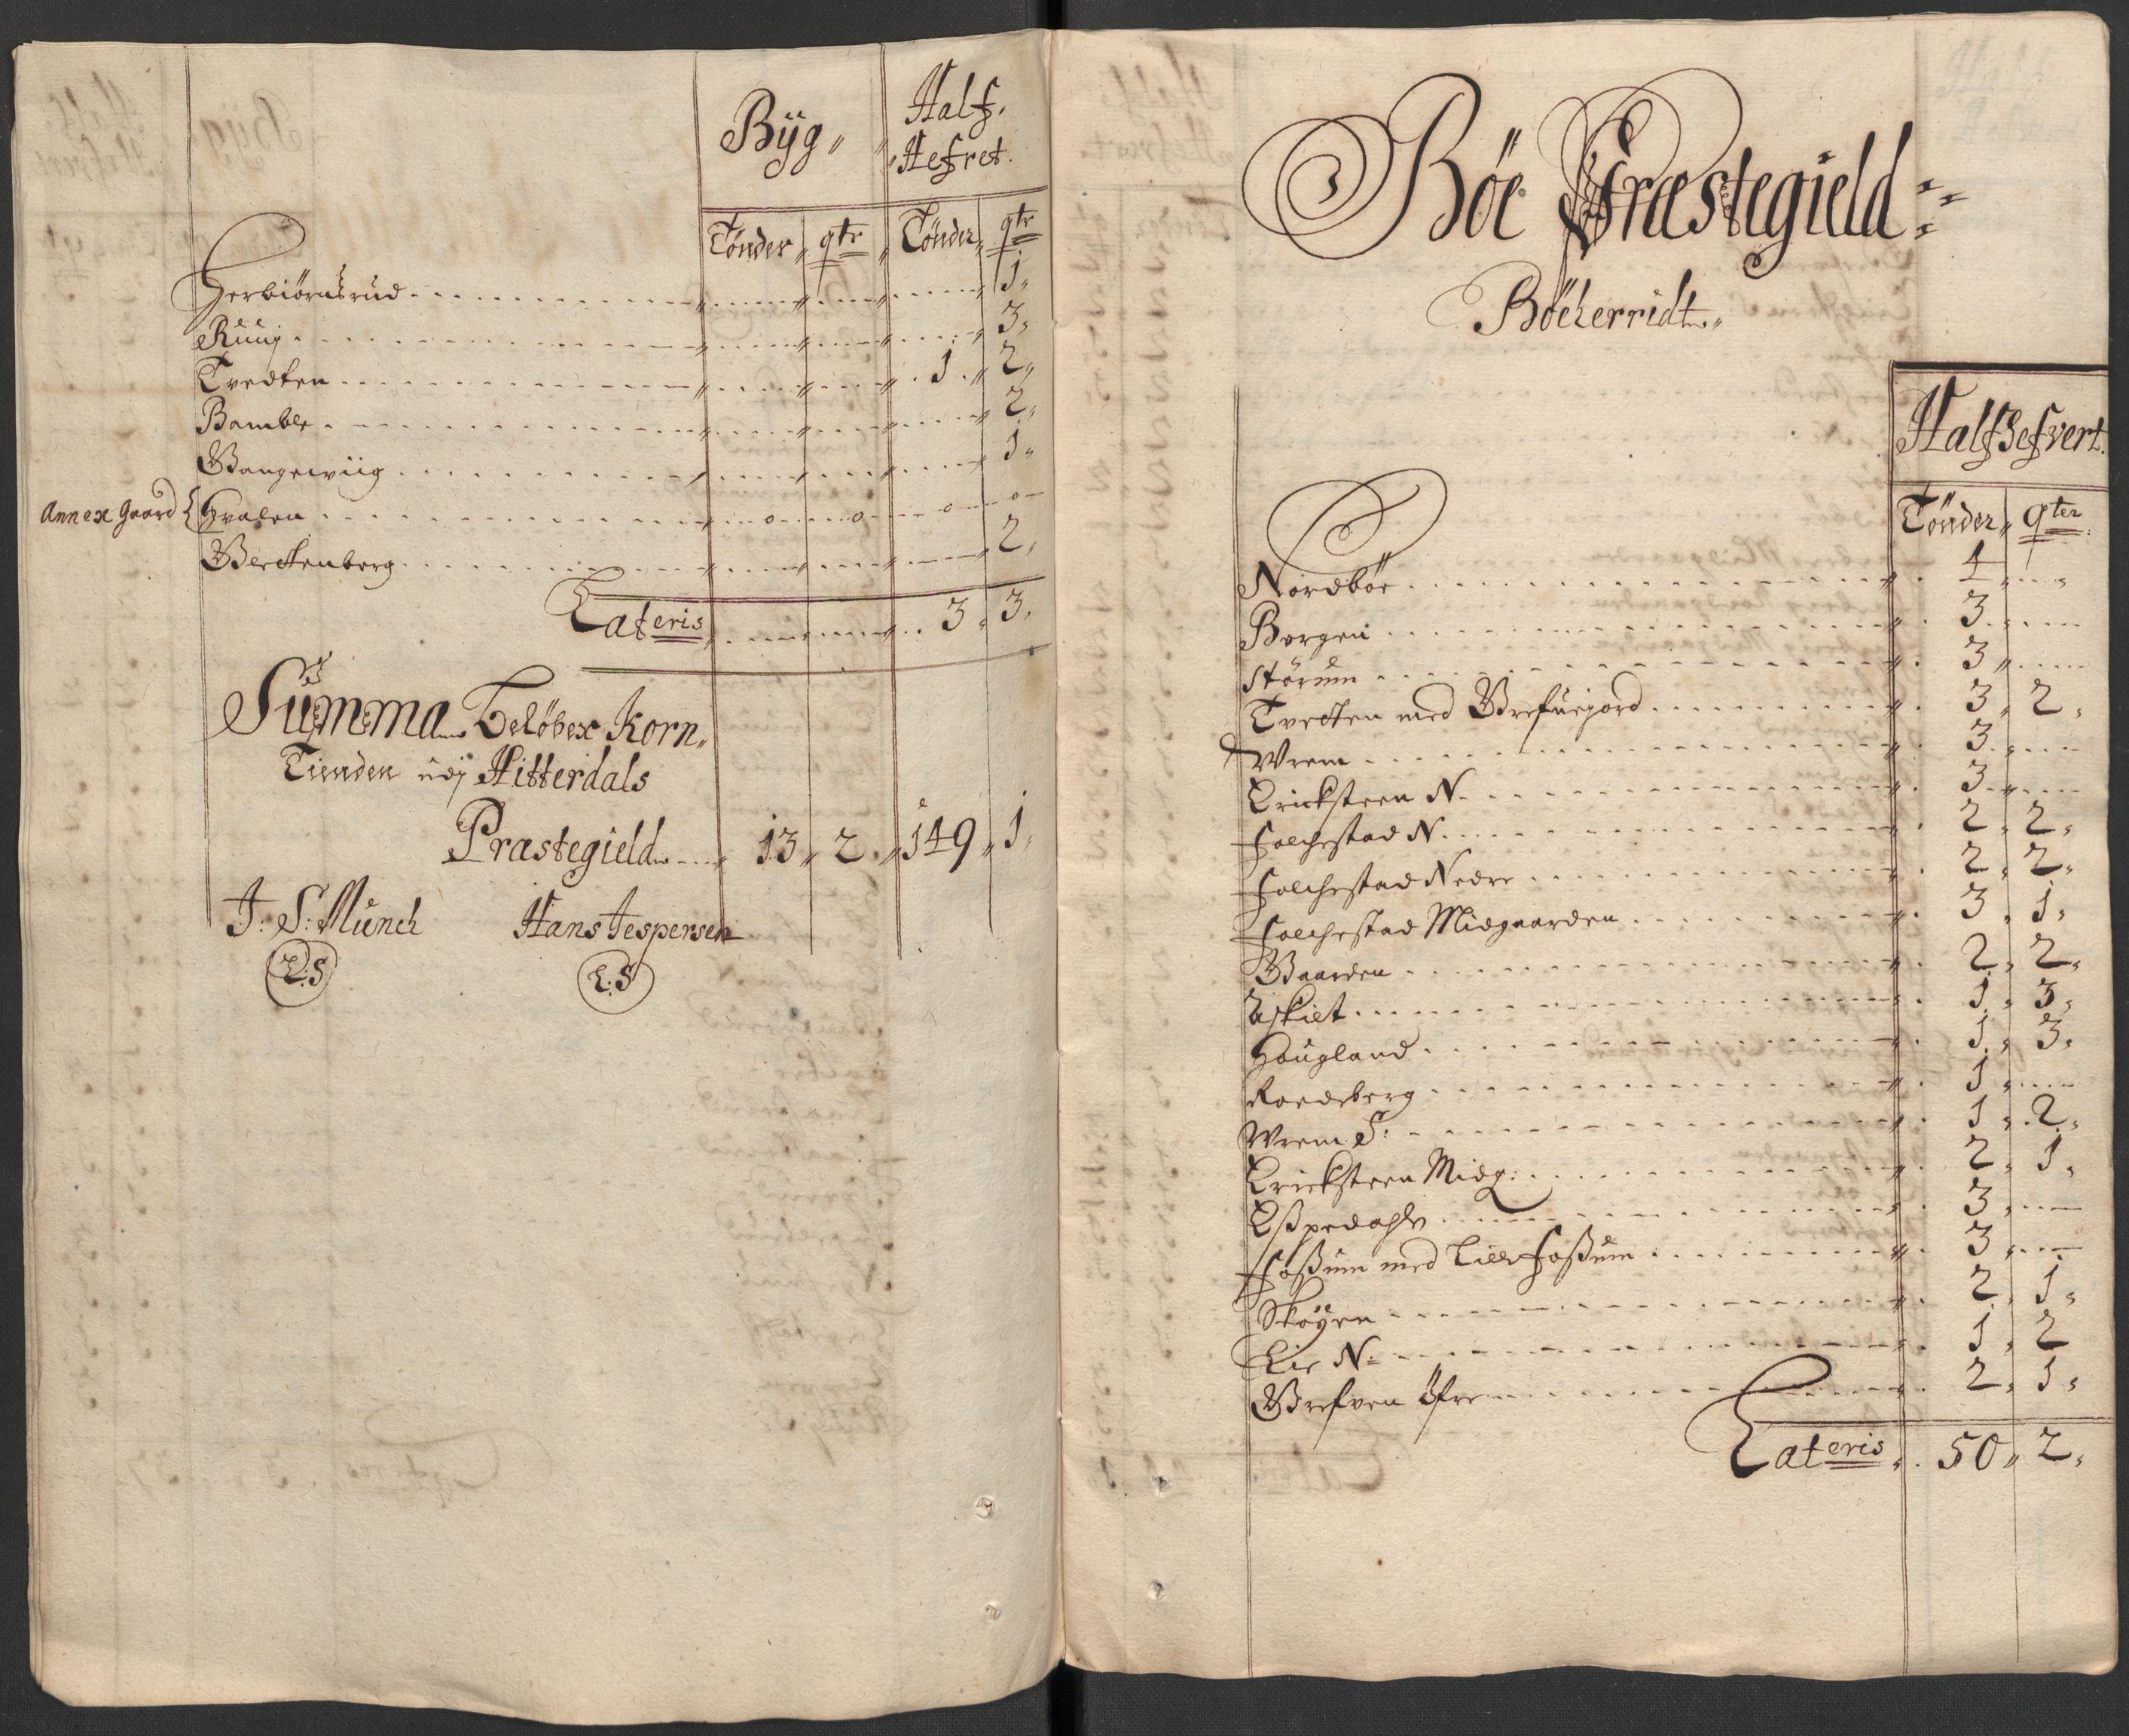 Byg „ Half.
„ Hefret.
Tønder „ qtr „ Tønder „ qtr
Herbiørnsrud 1 „
Ruuj 3 „
Tvedten 1 „ 2 „
Bamble 2 „
Wangewiig 1 „
Annex Gaard { Hvalen o o o o
Werckenberg 2 „
Lateris 3 „ 3 „
Summa Beløber Korn „
Tienden udj Hitterdals
Præstegield 13 „ 2 „ 149 „ 1 „
J: S: Munch Hans Jespersen
L:S L:S
Bøe Præstegield
Bøeherridt „
Halfhefvert.
Tønder „ qter
Nordbøe 4 „
Borgen 3 „
Størum 3 „
Tvedten med Wrefuejord 3 „ 2 „
Wrem 3 „
Ericksteen N. 3 „
Folchestad N. 2 „ 2 „
Folchestad Nedre 2 „ 2 „
Folchestad Midgaarden 3 „ 1 „
Waarden 2 „ 2 „
Askilt 1 „ 3 „
Hougland 1 „ 3 „
Roedeberg 1 „
Wrem S: 1 „ 2 „
Ericksteen Midg: 2 „ 1 „
Eßpedahlen 3 „
Foßum med Lille Foßum 3 „
Skøyen 2 „ 1 „
Lie N: 1 „ 2
Wrefven Øfre 2 „ 1 „
Lateris 50 „ 2 „